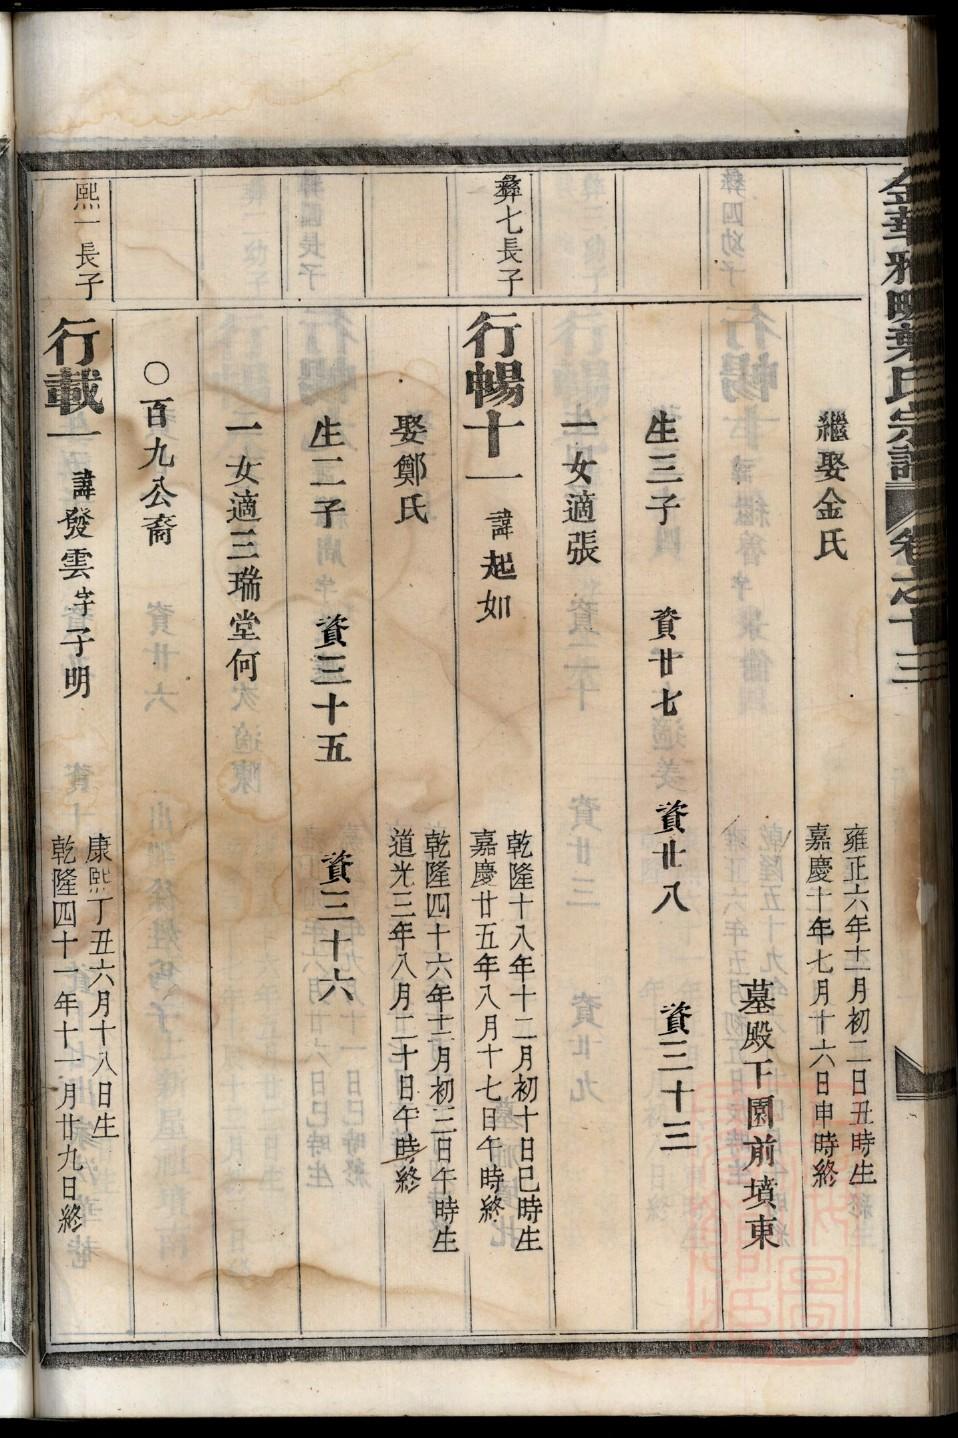 金華雅畈葉氏宗譜 卷之十三
繼娶金氏
雍正六年十二月初二日丑時生
嘉慶十年七月十六日申時終
墓殿下園前墳東
生三子 資廿七 資廿八 資三十三
一女適張
彝七長子
行暢十一 諱起如
乾隆十八年十二月初十日巳時生
嘉慶廿五年八月十七日午時終
娶鄭氏
乾隆四十六年十二月初三日午時生
道光三年八月二十日午時終
生二子 資三十五 資三十六
一女適三瑞堂何
○百九公裔
熙一長子
行載一 諱發雲字子明
康熙丁丑六月十八日生
乾隆四十一年十一月廿九日終